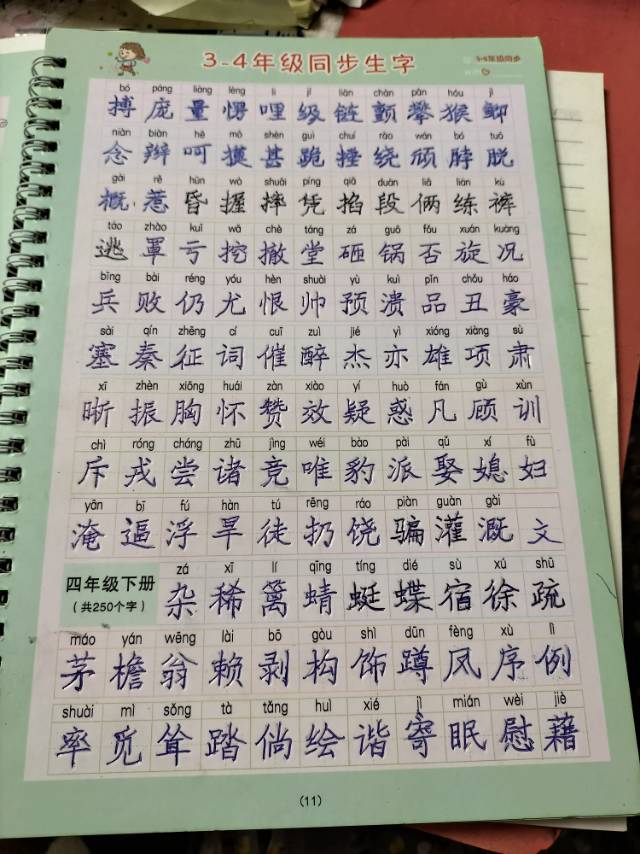 3-4年级同步生字
3-6年级同步
bó páng liàng lèng li jí liàn chàn pān hóu jì
搏 庞 量 愣 哩 级 链 颤 攀 猴 鲫
niàn biàn hē mō shèn guì chuí rào wán bó tuō
念 辩 呵 摸 甚 跪 捶 绕 顽 脖 脱
gài rě hūn wò shuāi píng qiā duàn liǎ liàn kù
概 惹 昏 握 摔 凭 掐 段 俩 练 裤
táo zhào kuī wā chè táng zá guō fǒu xuán kuàng
逃 罩 亏 挖 撤 堂 砸 锅 否 旋 况
bīng bài réng yóu hèn shuài yù kuì pǐn chǒu háo
兵 败 仍 尤 恨 帅 预 溃 品 丑 豪
sài qín zhēng cí cuī zuì jié yì xióng xiàng sù
塞 秦 征 词 催 醉 杰 亦 雄 项 肃
xī zhèn xiōng huái zàn xiào yí huò fán gù xùn
晰 振 胸 怀 赞 效 疑 惑 凡 顾 训
chì róng cháng zhū jìng wéi bào pài qǔ xí fù
斥 戎 尝 诸 竞 唯 豹 派 娶 媳 妇
yān bī fú hàn tú rēng ráo piàn guàn gài
淹 逼 浮 旱 徒 扔 饶 骗 灌 溉 文
zá xī lí qīng tíng dié sù xú shū
四年级下册 杂 稀 篱 蜻 蜓 蝶 宿 徐 疏
（共250个字）
máo yán wēng lài bō gòu shì dūn fèng xù lì
茅 檐 翁 赖 剥 构 饰 蹲 凤 序 例
shuài mì sǒng tà tǎng huì xié jì mián wèi jiè
率 觅 耸 踏 倘 绘 谐 寄 眠 慰 藉
（11）